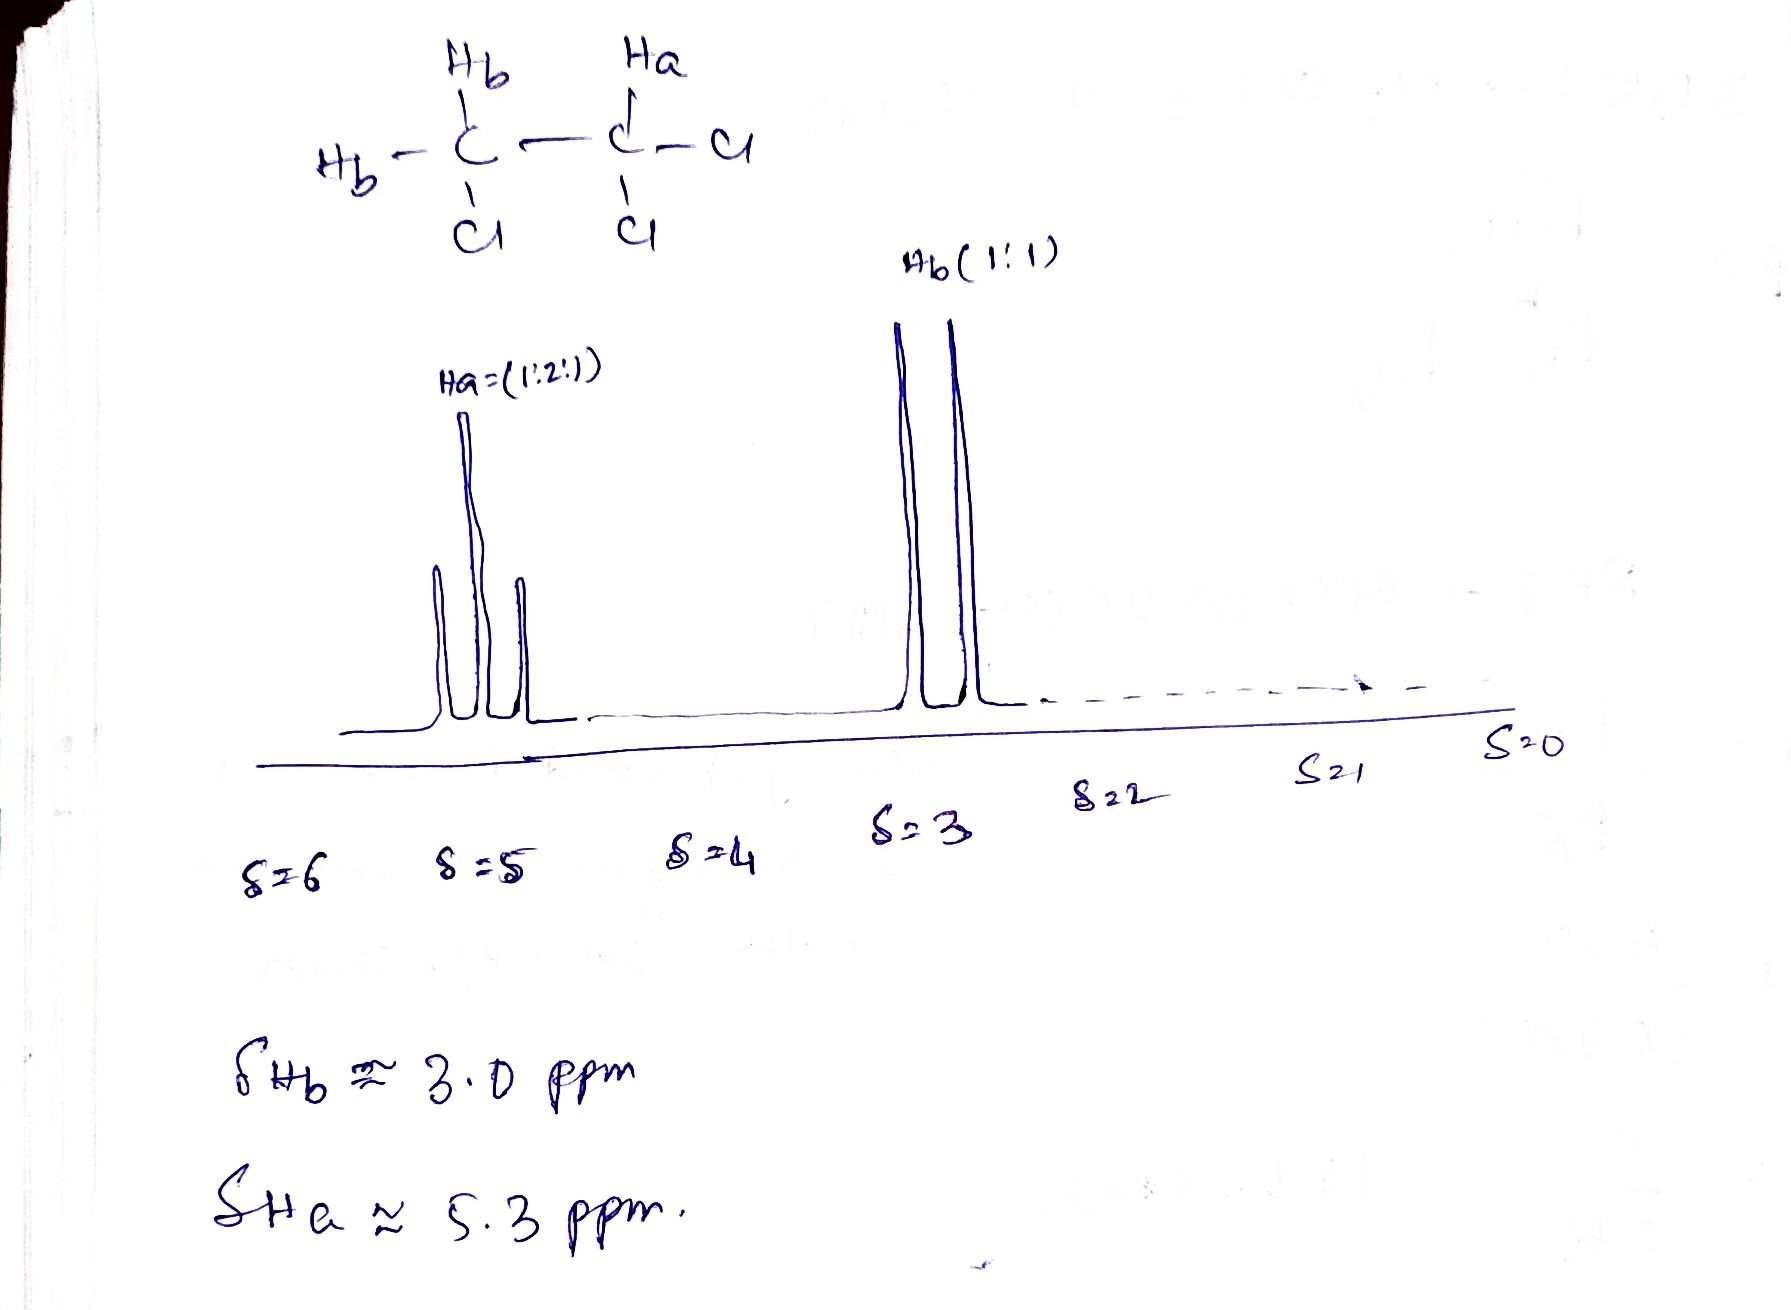 Hb Ha
Hb - C - C - Cl
Cl Cl
Hb (1:1)
Ha = (1:2:1)
δ=0
δ=1
δ=2
δ=3
δ=4
δ=5
δ=6
δHb ≈ 3.0 ppm
δHa ≈ 5.3 ppm.